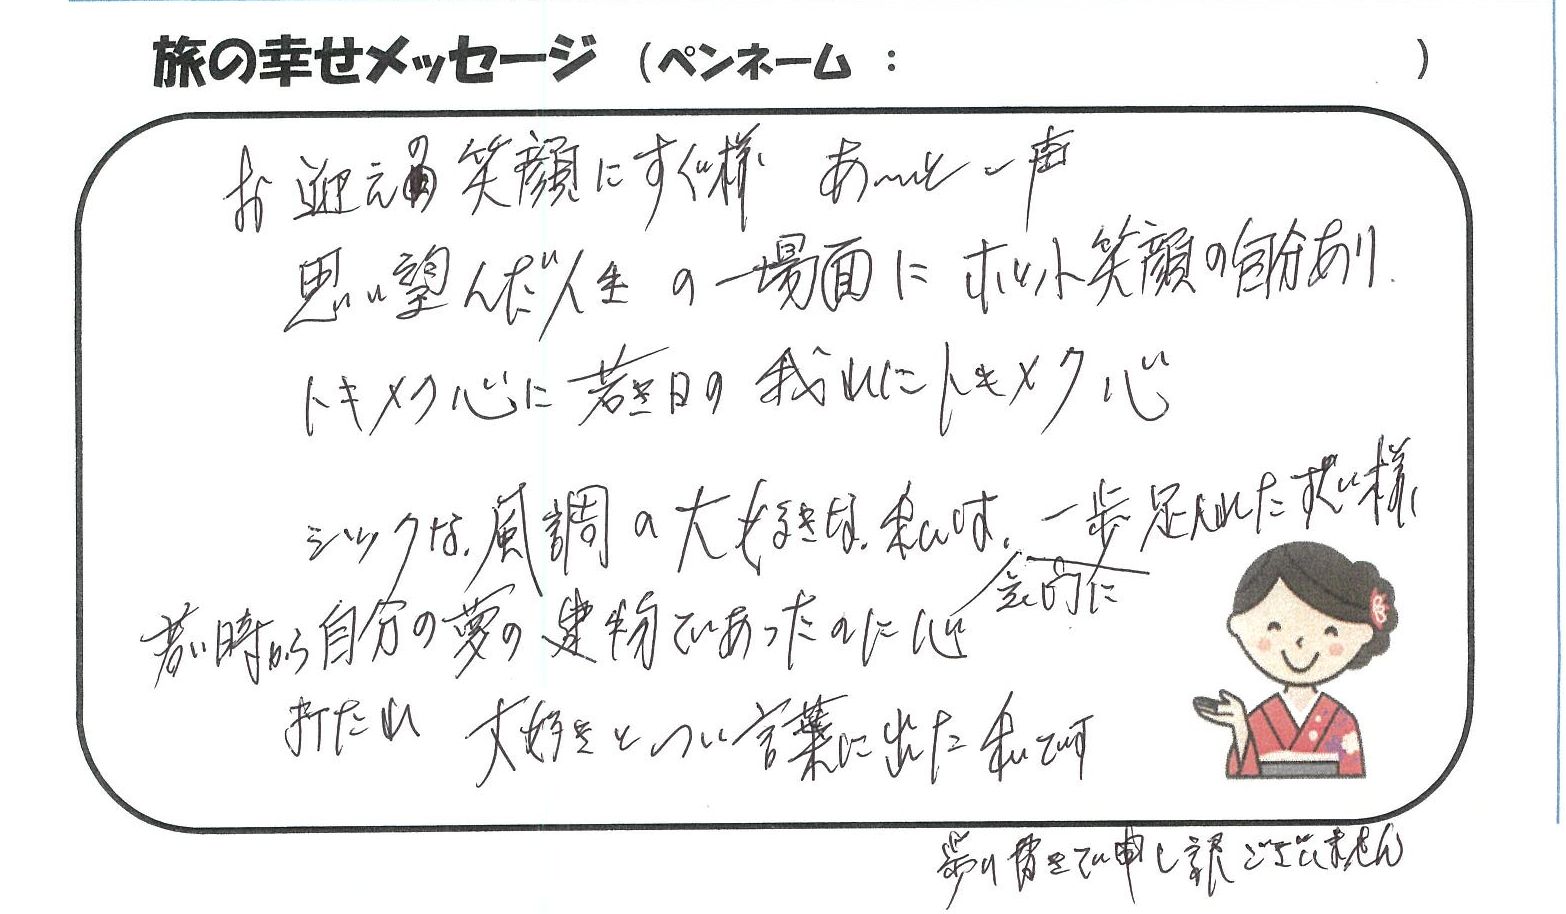 旅の幸せメッセージ (ペンネーム : )
お迎えの笑顔にすぐ様 あ〜っと一声
思い望んだ人生の一場面に ホット笑顔の自分あり.
トキメク心に若き日の我れにトキメク心
シックな、風調の大好きな、私は、一歩足入れたすぐ様、
若い時から自分の夢の建物であったのに心
打たれ 大好きとつい言葉に出た私です
走り書きで申し訳ございません